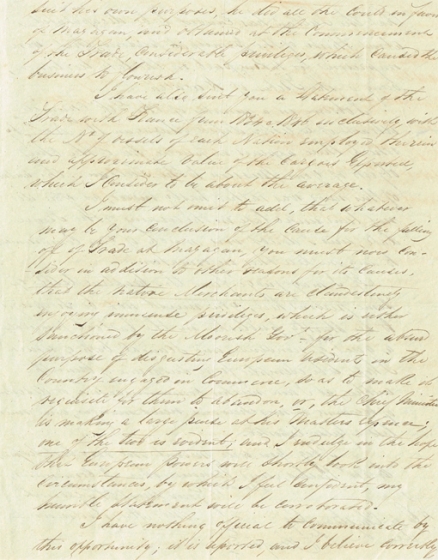 suit his own purposes, he did all he could in favor
of Mazagan, and obtained at the Commencement
of the Trade, Considerable privileges, which caused the
business to flourish.
I have also sent you a Statement of the
Trade with France from 1834 to inclusively, with
the No. of vessels of each Nation employed therein
and approximate value of the Cargoes Exported,
which I consider to be about the average.
I must not omit to add, that whatever
may be your conclusion of the Cause for the falling
off of Trade at Mazagan, you must now, con-
sider in addition to other reasons for its causes,
that the Native Merchants are clandestinely
enjoying immense privileges, which is either
sanctioned by the Moorish Govt. for the absurd
purpose of disgusting European residents in the
Country engaged in Commerce, so as to make it
requisite for them to abandon, or, the Chief Minister
is making a large purse at his Masters expence;
one of the two is evident; and I indulge in the hope
the European powers will shortly look into the
circumstances, by which I feel confident, my
humble statement will be corroborated.
I have nothing official to communicate by
this opportunity; it is reported and I believe correctly